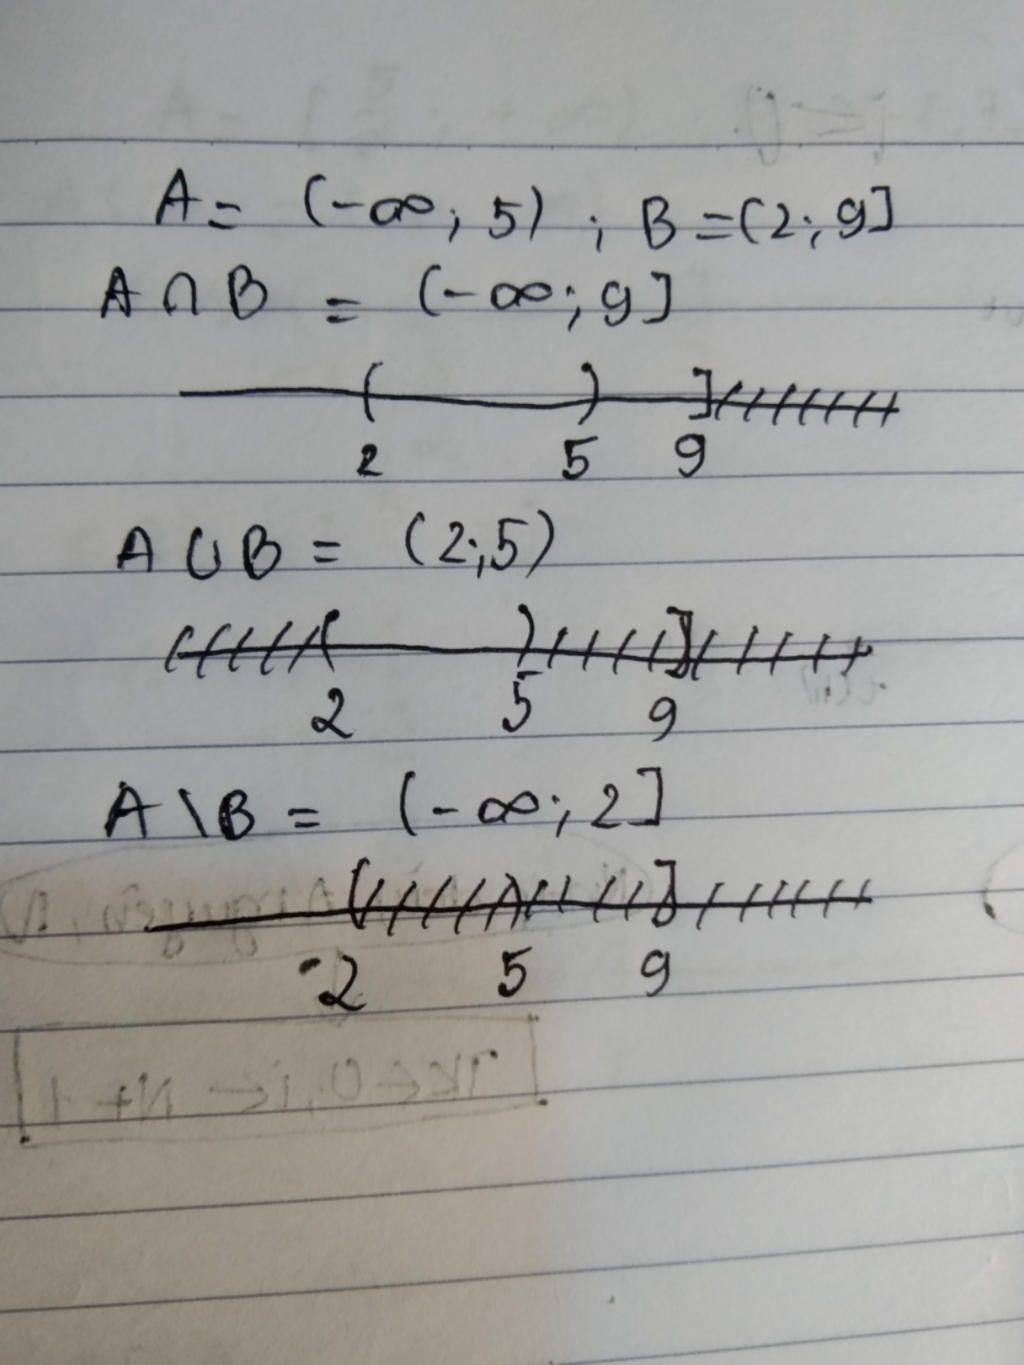 A = (-∞; 5) ; B = (2; 9]
A ∩ B = (-∞; 9]
2 5 9
A ∪ B = (2; 5)
2 5 9
A \ B = (-∞; 2]
2 5 9